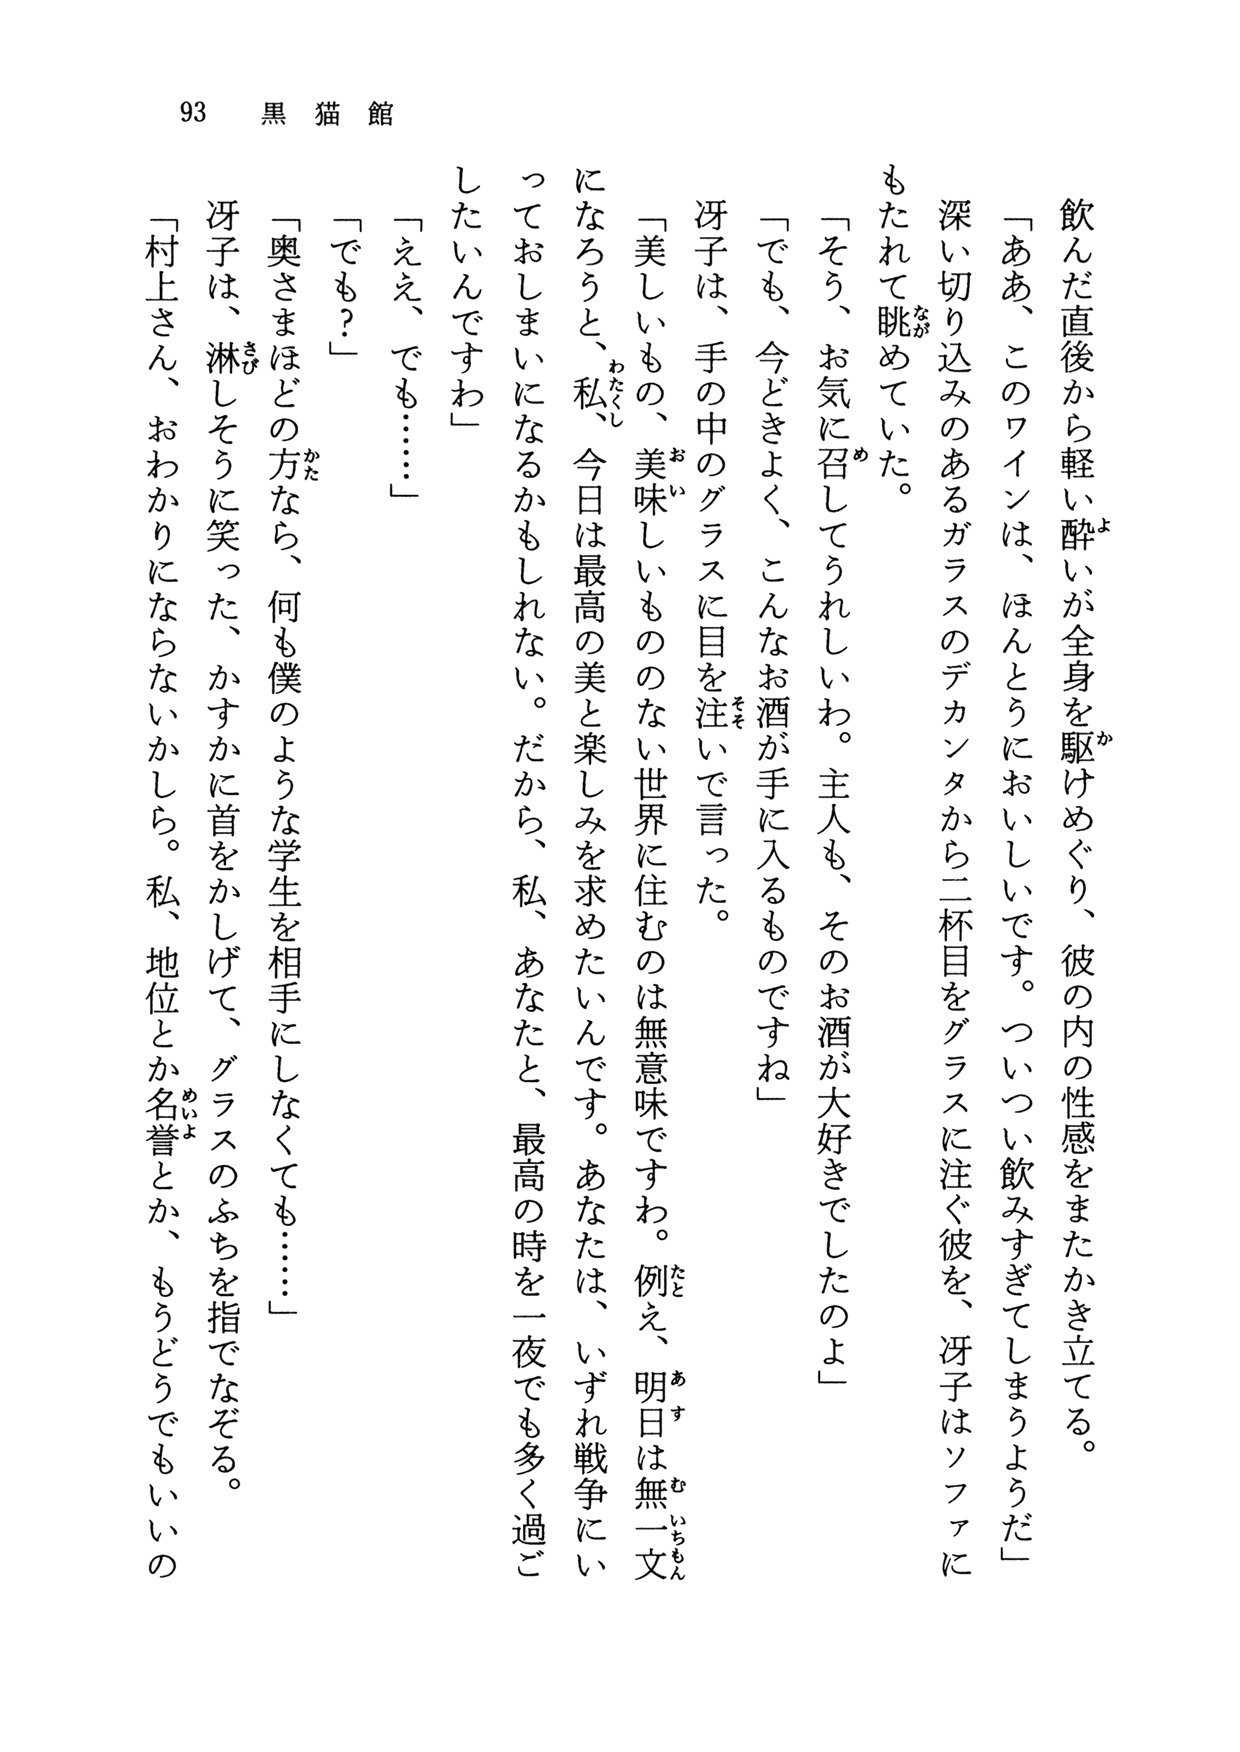 93　黒猫館
飲んだ直後から軽い酔いが全身を駆けめぐり、彼の内の性感をまたかき立てる。
「ああ、このワインは、ほんとうにおいしいです。ついつい飲みすぎてしまうようだ」
深い切り込みのあるガラスのデカンタから二杯目をグラスに注ぐ彼を、冴子はソファに
もたれて眺めていた。
「そう、お気に召してうれしいわ。主人も、そのお酒が大好きでしたのよ」
「でも、今どきよく、こんなお酒が手に入るものですね」
冴子は、手の中のグラスに目を注いで言った。
「美しいもの、美味しいもののない世界に住むのは無意味ですわ。例え、明日は無一文
になろうと、私、今日は最高の美と楽しみを求めたいんです。あなたは、いずれ戦争にい
っておしまいになるかもしれない。だから、私、あなたと、最高の時を一夜でも多く過ご
したいんですわ」
「ええ、でも……」
「でも？」
「奥さまほどの方なら、何も僕のような学生を相手にしなくても……」
冴子は、淋しそうに笑った、かすかに首をかしげて、グラスのふちを指でなぞる。
「村上さん、おわかりにならないかしら。私、地位とか名誉とか、もうどうでもいいの